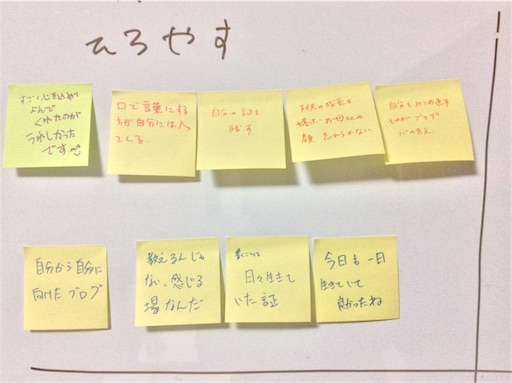 ひろやす
すごく心を込めて
よんで
くれたのが
うれしかった
です
口で言葉にする
方が自分には入っ
てくる
自分の
残す
子供の成長を
お母さんの
顔 忘れられない
自分を見つめ直す
ブログ
自分から自分に
向けたブログ
教えるんじゃ
ない、感じる
場なんだ
書くことは
日々生きて
いた証
今日も一日
生きていて
良かったね